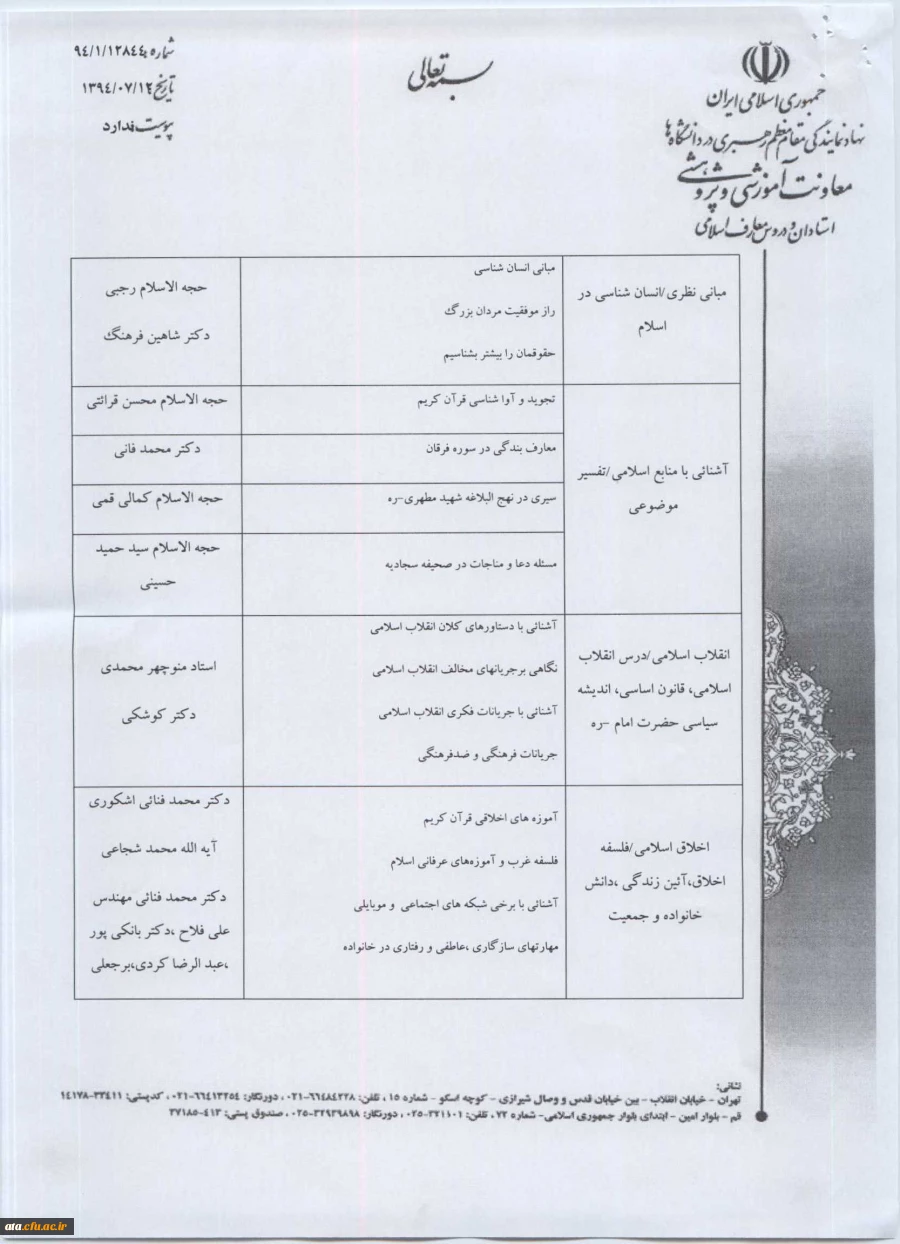 بسمه تعالی
جمهوری اسلامی ایران
نهاد نمایندگی مقام معظم رهبری در دانشگاه‌ها
معاونت آموزشی و پژوهشی
استادان و دروس معارف اسلامی
شماره: ۹٤/۱/۱۲۸٤٤
تاریخ: ۱۳۹٤/۰۷/۱٤
پیوست: ندارد
مبانی نظری/انسان شناسی در
اسلام
مبانی انسان شناسی
راز موفقیت مردان بزرگ
حقوقمان را بیشتر بشناسیم
حجه الاسلام رجبی
دکتر شاهین فرهنگ
آشنائی با منابع اسلامی/تفسیر
موضوعی
تجوید و آوا شناسی قرآن کریم
حجه الاسلام محسن قرائتی
معارف بندگی در سوره فرقان
دکتر محمد فانی
سیری در نهج البلاغه شهید مطهری-ره
حجه الاسلام کمالی قمی
مسئله دعا و مناجات در صحیفه سجادیه
حجه الاسلام سید حمید
حسینی
انقلاب اسلامی/درس انقلاب
اسلامی، قانون اساسی، اندیشه
سیاسی حضرت امام -ره
آشنائی با دستاورهای کلان انقلاب اسلامی
نگاهی برجریانهای مخالف انقلاب اسلامی
آشنائی با جریانات فکری انقلاب اسلامی
جریانات فرهنگی و ضدفرهنگی
استاد منوچهر محمدی
دکتر کوشکی
اخلاق اسلامی/فلسفه
اخلاق،آئین زندگی ،دانش
خانواده و جمعیت
آموزه های اخلاقی قرآن کریم
فلسفه غرب و آموزه‌های عرفانی اسلام
آشنائی با برخی شبکه های اجتماعی و موبایلی
مهارتهای سازگاری ،عاطفی و رفتاری در خانواده
دکتر محمد فنائی اشکوری
آیه الله محمد شجاعی
دکتر محمد فنائی مهندس
علی فلاح ،دکتر بانکی پور
،عبد الرضا کردی،برجعلی
نشانی:
تهران - خیابان انقلاب - بین خیابان قدس و وصال شیرازی - کوچه اسکو - شماره ۱۵ ، تلفن: ۶۶۴۸۴۲۲۸-۰۲۱ ، دورنگار: ۶۶۴۱۳۲۵۴-۰۲۱ ، کدپستی: ۳۳۴۱۱-۱۴۱۷۸
قم - بلوار امین - ابتدای بلوار جمهوری اسلامی- شماره ۷۲ ، تلفن: ۳۲۱۱۰۱-۰۲۵ ، دورنگار: ۳۲۹۳۹۸۹۸-۰۲۵ ، صندوق پستی: ۴۱۳-۳۷۱۸۵
ata.cfu.ac.ir